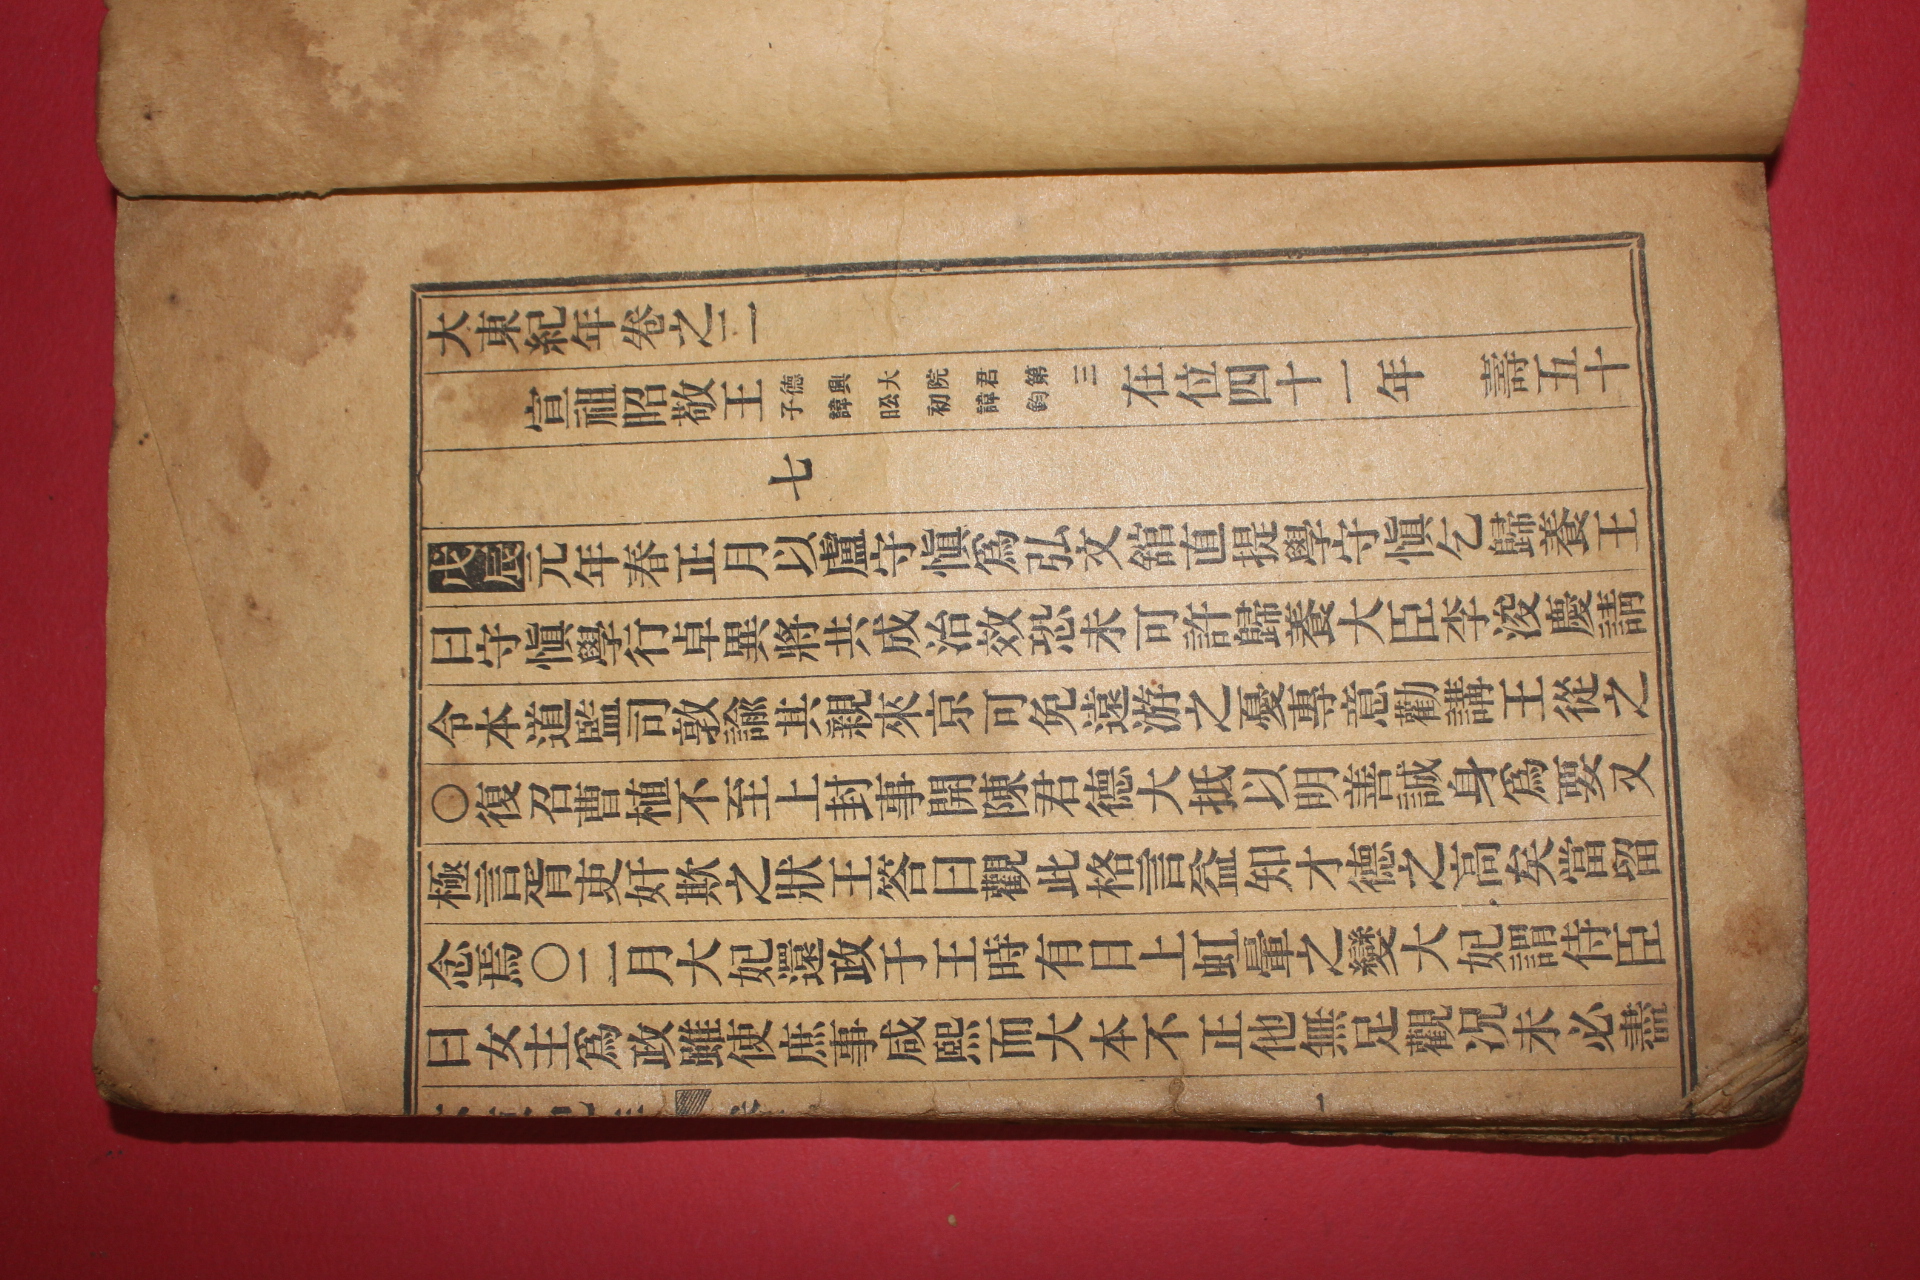 大東紀年卷之二
宣祖昭敬王德興大院君第三子諱昖初諱鈞在位四十一年 壽五十
七
戊辰元年春正月以盧守愼爲弘文舘直提學守愼乞歸養王
曰守愼學行卓異將共成治效恐未可許歸養大臣李浚慶請
令本道監司敦諭其親來京可免遠游之憂專意勸講王從之
〇復召曹植不至上封事開陳君德大抵以明善誠身爲要又
極言胥吏奸欺之狀王答曰觀此格言益知才德之高矣當留
念焉〇二月大妃還政于王時有日上虹暈之變大妃謂侍臣
曰女主爲政雖使庶事咸熙而大本不正他無足觀况未必盡